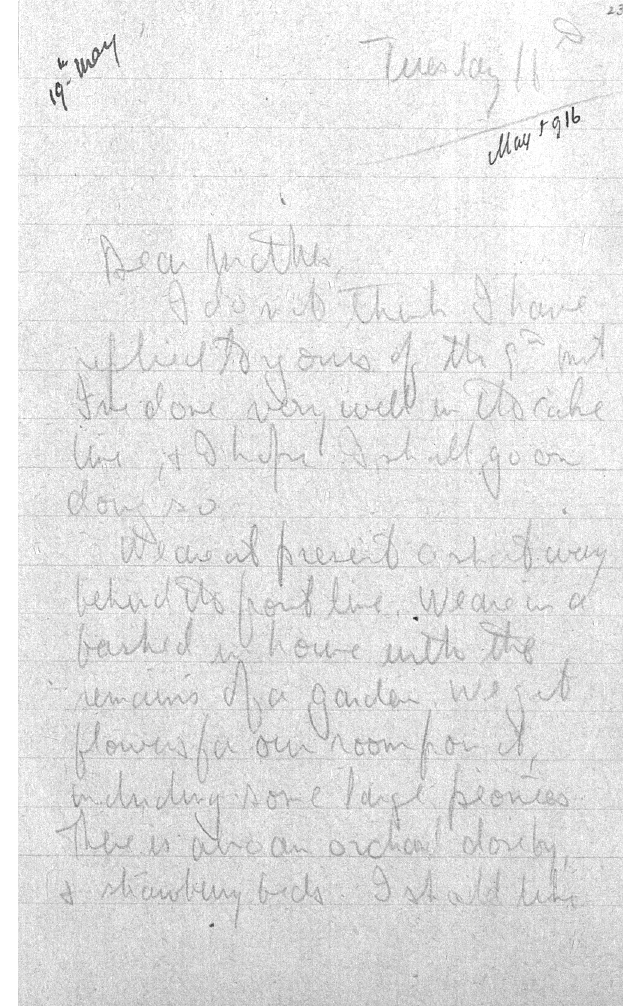 23
19th May
Tuesday 16th
May 1916
Dear Mother,
I don't think I have
replied to yours of the 9th inst
I've done very well in the cake
line, & I hope I shall go on
doing so
We are at present a short way
behind the front line. We are in a
bashed in house with the
remains of a garden. We get
flowers for our room from it,
including some large peonies.
There is also an orchard close by,
& strawberry beds. I shall